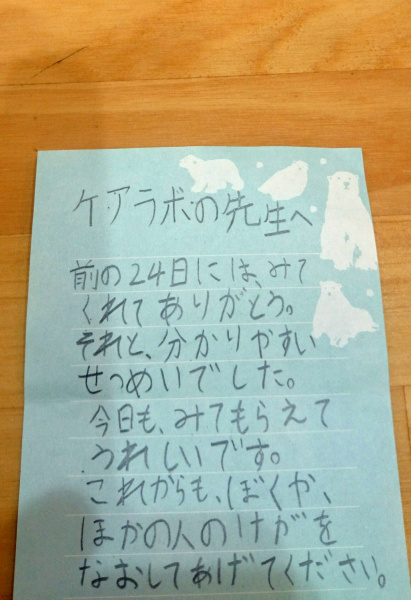 ケアラボの先生へ
前の24日には、みて
くれてありがとう。
それと、分かりやすい
せつめいでした。
今日も、みてもらえて
うれしいです。
これからも、ぼくか、
ほかの人のけがを
なおしてあげてください。